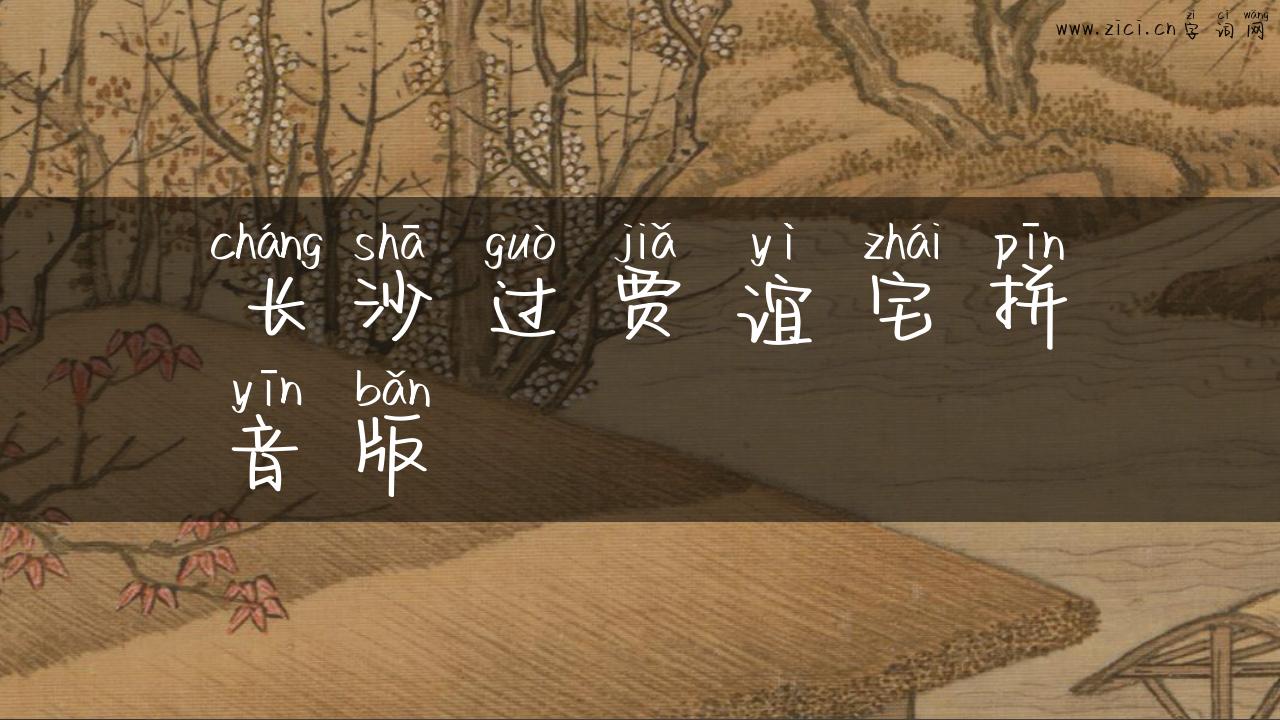 zì cí wǎng
www.zici.cn 字 词 网
cháng shā guò jiǎ yì zhái pīn
长 沙 过 贾 谊 宅 拼
yīn bǎn
音 版